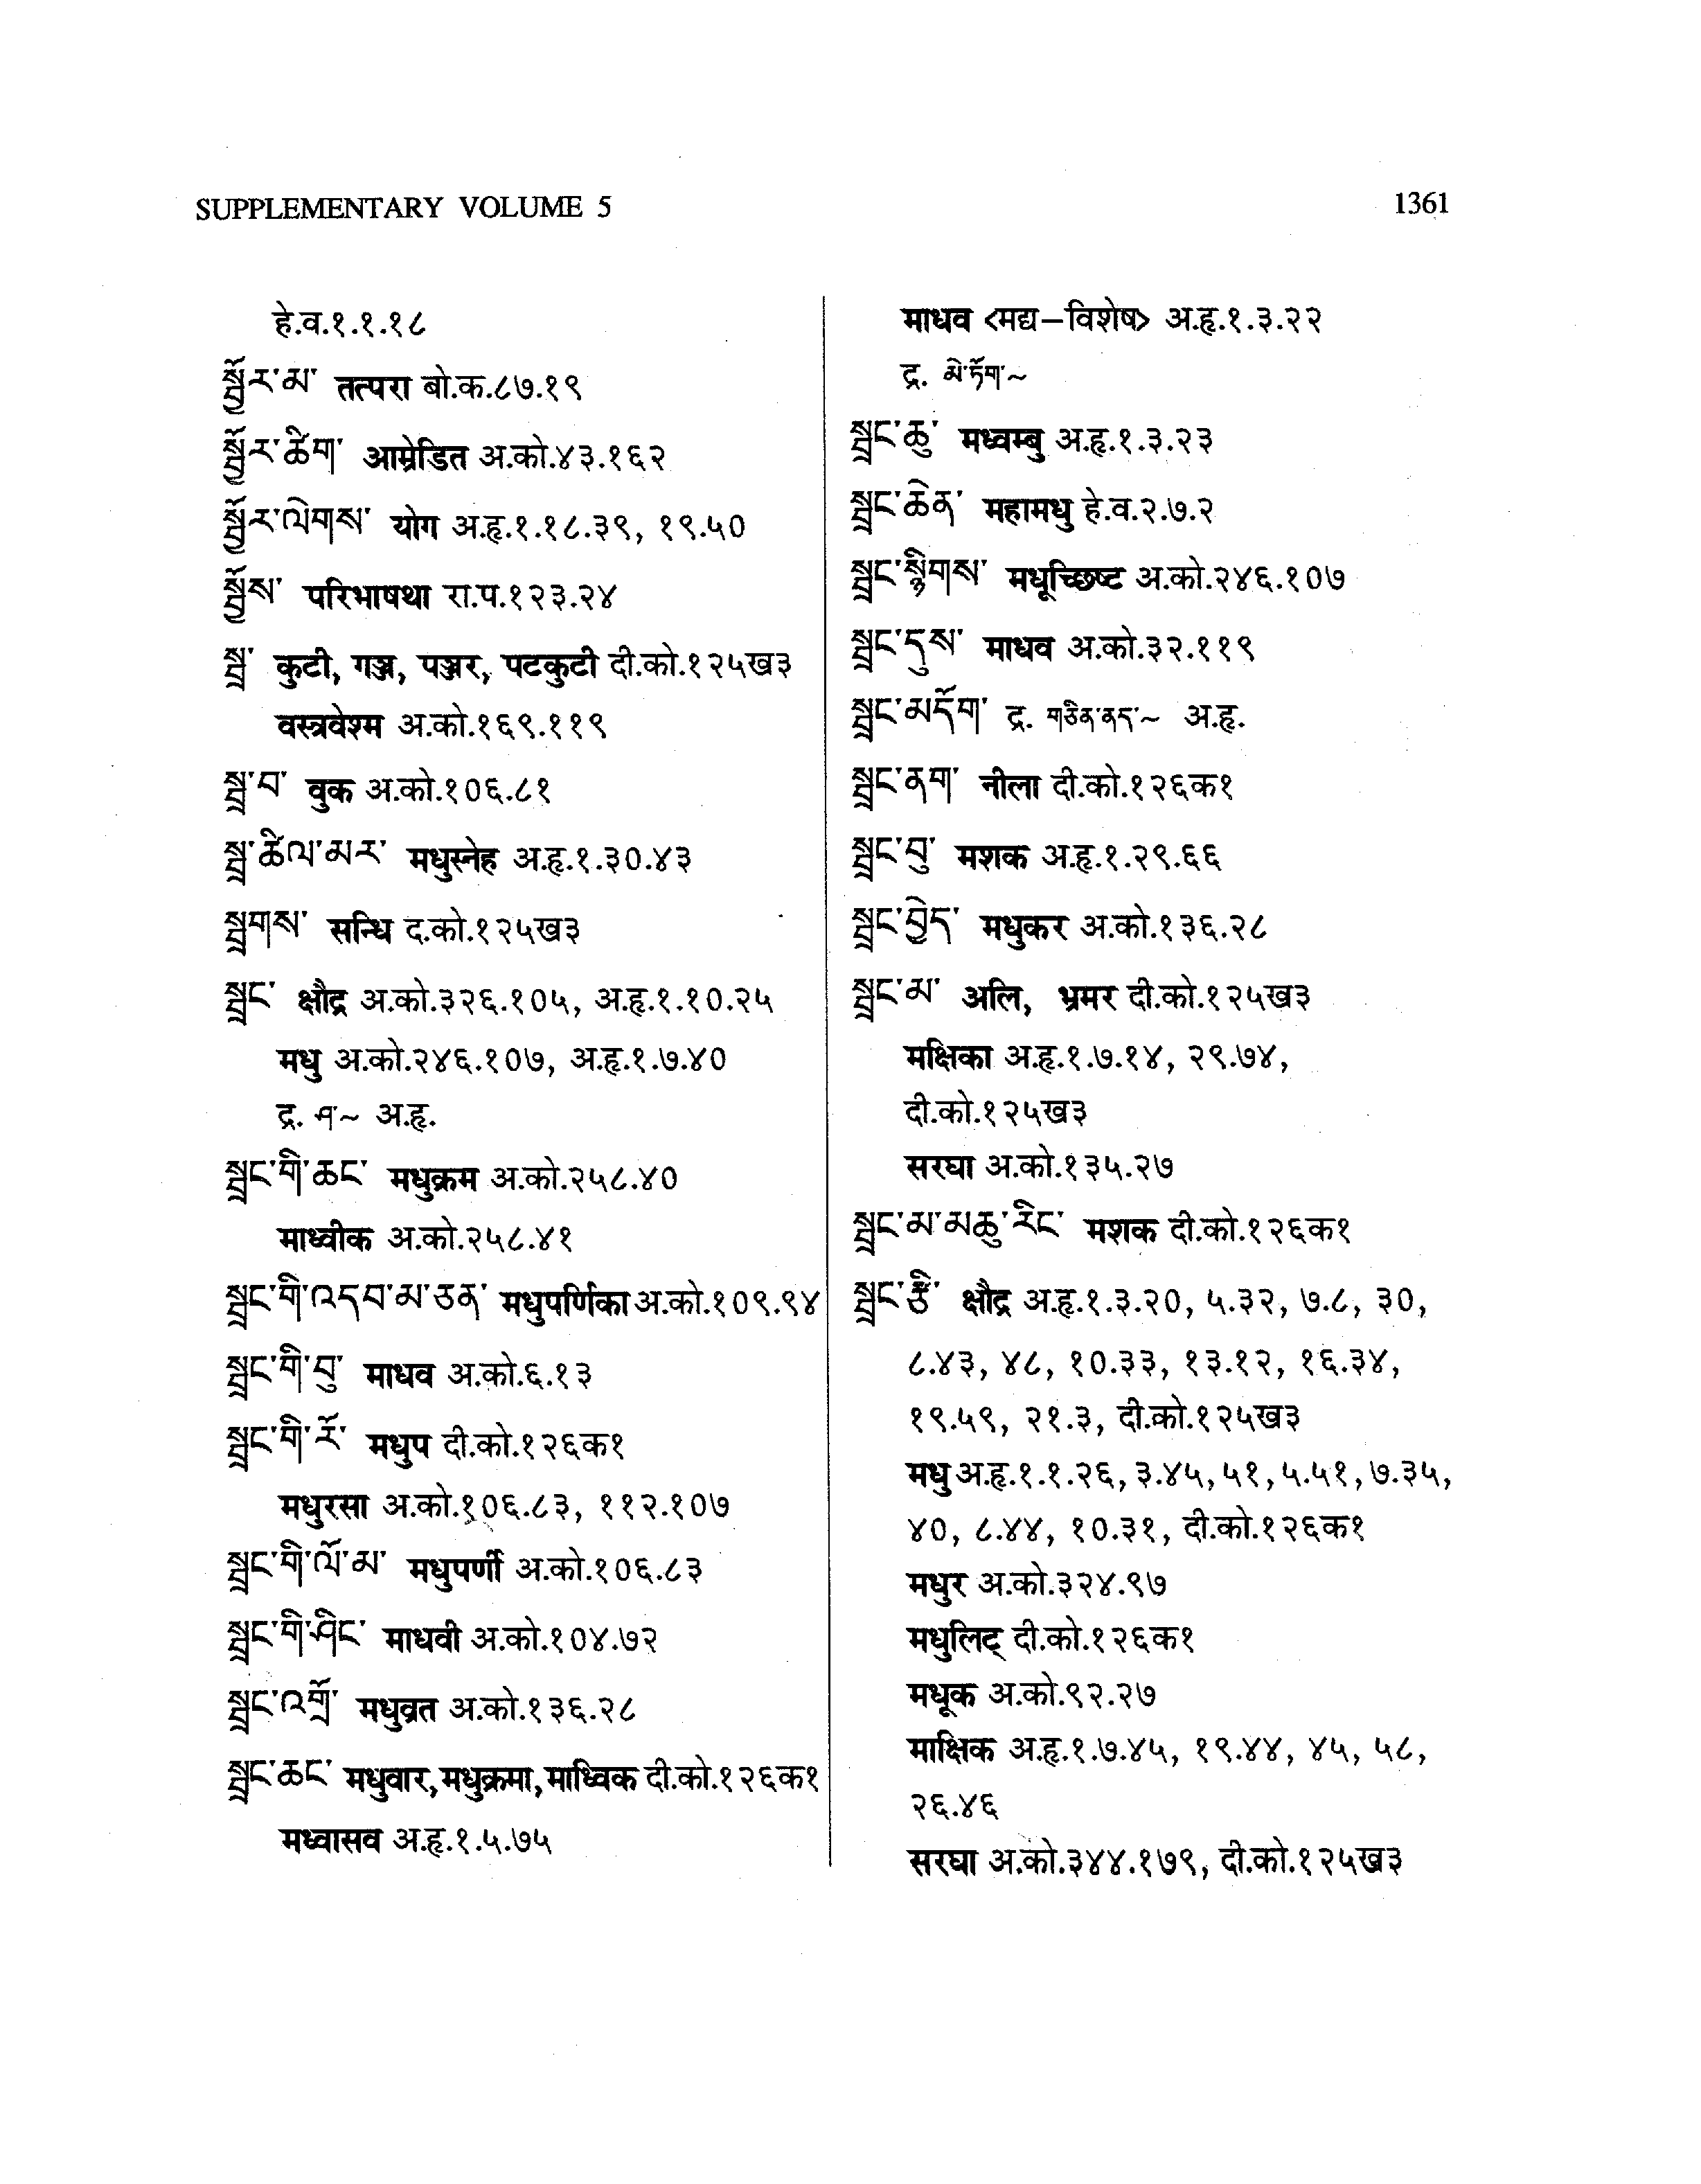 SUPPLEMENTARY VOLUME 5
1361
हे.व.१.१.१८
སྦྱོར་མ་ तत्परा बो.क.८७.१९
སྦྱོར་ཚིག་ आम्रेडित अ.को.४३.१६२
སྦྱོར་ལེགས་ योग अ.हृ.१.१८.३९, १९.५०
སྦྱོས་ परिभाषथा रा.प.१२३.२४
སྦྲ་ कुटी, गञ्ज, पञ्जर, पटकुटी दी.को.१२५ख३
वस्त्रवेश्म अ.को.१६९.११९
སྦྲ་བ་ वुक अ.को.१०६.८१
སྦྲ་ཚིལ་མར་ मधुस्नेह अ.हृ.१.३०.४३
སྦྲགས་ सन्धि द.को.१२५ख३
སྦྲང་ क्षौद्र अ.को.३२६.१०५, अ.हृ.१.१०.२५
मधु अ.को.२४६.१०७, अ.हृ.१.७.४०
द्र. ཤ་~ अ.हृ.
སྦྲང་གི་ཆང་ मधुक्रम अ.को.२५८.४०
माध्वीक अ.को.२५८.४१
སྦྲང་གི་འདབ་མ་ཅན་ मधुपर्णिका अ.को.१०९.९४
སྦྲང་གི་བུ་ माधव अ.को.६.१३
སྦྲང་གི་རོ་ मधुप दी.को.१२६क१
मधुरसा अ.को.१०६.८३, ११२.१०७
སྦྲང་གི་ལོ་མ་ मधुपर्णी अ.को.१०६.८३
སྦྲང་གི་ཤིང་ माधवी अ.को.१०४.७२
སྦྲང་འགྲོ་ मधुव्रत अ.को.१३६.२८
སྦྲང་ཆང་ मधुवार, मधुक्रमा, माध्विक दी.को.१२६क१
मध्वासव अ.हृ.१.५.७५
माधव <मद्य–विशेष> अ.हृ.१.३.२२
द्र. མེ་ཏོག་~
སྦྲང་ཆུ་ मध्वम्बु अ.हृ.१.३.२३
སྦྲང་ཆེན་ महामधु हे.व.२.७.२
སྦྲང་སྙིགས་ मधूच्छिष्ट अ.को.२४६.१०७
སྦྲང་དུས་ माधव अ.को.३२.११९
སྦྲང་མདོག་ द्र. གཅིན་ནད་~ अ.हृ.
སྦྲང་ནག་ नीला दी.को.१२६क१
སྦྲང་བུ་ मशक अ.हृ.१.२९.६६
སྦྲང་བྱེད་ मधुकर अ.को.१३६.२८
སྦྲང་མ་ अलि, भ्रमर दी.को.१२५ख३
मक्षिका अ.हृ.१.७.१४, २९.७४,
दी.को.१२५ख३
सरघा अ.को.१३५.२७
སྦྲང་མ་མཆུ་རིང་ मशक दी.को.१२६क१
སྦྲང་རྩི་ क्षौद्र अ.हृ.१.३.२०, ५.३२, ७.८, ३०,
८.४३, ४८, १०.३३, १३.१२, १६.३४,
१९.५९, २१.३, दी.को.१२५ख३
मधु अ.हृ.१.१.२६, ३.४५, ५१, ५.५१, ७.३५,
४०, ८.४४, १०.३१, दी.को.१२६क१
मधुर अ.को.३२४.९७
मधुलिट् दी.को.१२६क१
मधूक अ.को.९२.२७
माक्षिक अ.हृ.१.७.४५, १९.४४, ४५, ५८,
२६.४६
सरघा अ.को.३४४.१७९, दी.को.१२५ख३